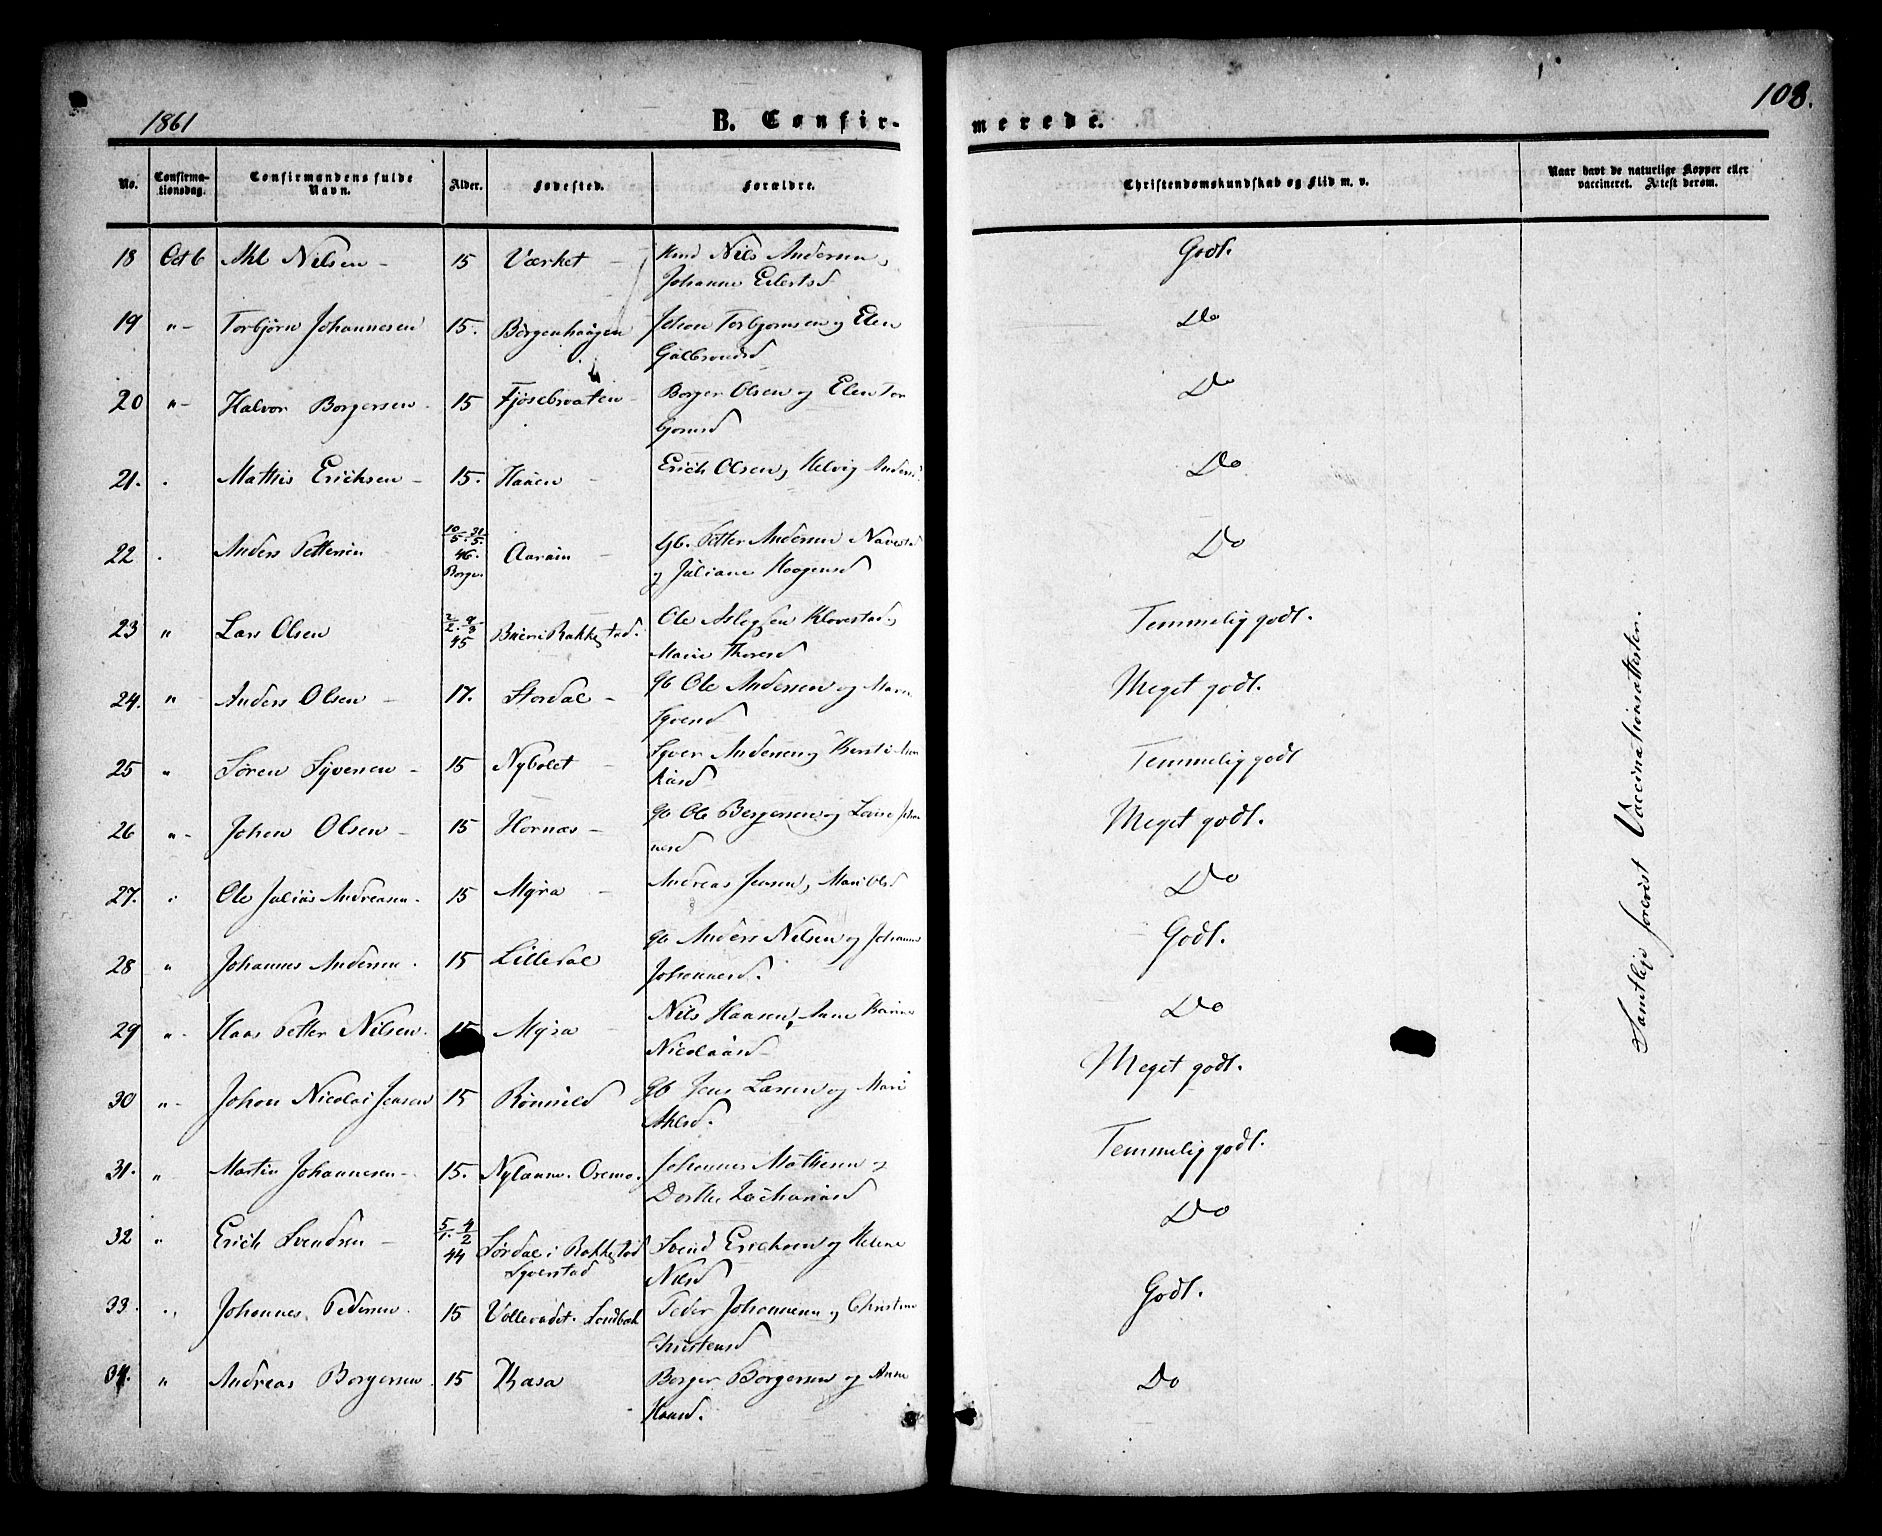 108.
1861
B. Confirmerede.
No.
Confirmationsdag.
Confirmandens fulde Navn.
Alder.
Fødested.
Forældre.
Christendomskundskab og Flid m. v.
Naar havt de naturlige Kopper eller vaccineret. Attest derom.
18 Oct 6 Nilsen - 15 Værket - Nils Andersen, Johanne Eilertsd Godt.
19 "- Torbjörn Johannesen 15. Börgenhaugen Johan Torbjornsen og Elen Gulbrandsd Do
20 "- Halvor Borgersen 15 Fjösebraaten - Borger Olsen og Elen Torbjornsd Do
21. Mathis Erichsen - 15. Haaen - Erich Olsen, Helvig Do
22 Anders Pettersen 10/5. 31/5. 46. Borge. - gb. Petter Andersen Navestad og Juliane Haagensd Do
23 " Lars Olsen 45 Rakkestad. Ole Klovestad, Marie Temmelig godt.
24. " - Anders Olsen - 17. Stordal - gb Ole Andersen og Syversd Meget godt.
25 " Sören Syversen - 15 Nybolet - Syver Andersen, Temmelig godt
26 "- Johan Olsen - 15 Hornæs - gb Ole Borgersen og Meget godt.
27. Ole Julius Andreasen. 15 Myra - Andreas Jensen, Do
28 " Johannes Andersen. 15 Lilledal gb Anders Nilsen og Johanne Johannesd. Godt.
29 "- Hans Petter Nilsen. 15 Myra - Nils Hansen, Anne Karine Nicolaisd - Do
30 "- Johan Nicolai Jensen 15 gb Jens Larsen og Mari Meget godt.
31. " Martin Johannesen - 15. Johannes Mathesen og Dorthe Zachariasd Temmelig godt.
32 " Erich Svendsen - 5/1. 4/2 44 Sördal i Rakkestad Syverstad Svend Erichsen og Helene Nilsd Do
33. " Johannes Pedersen. 15 Peder Johannesen og Christine Christensd Godt.
34. " Andreas Borgersen. 15 Thasa Borger Borgersen og Anne Hansd. Do
Samtlige forevist Vaccinationsattester.